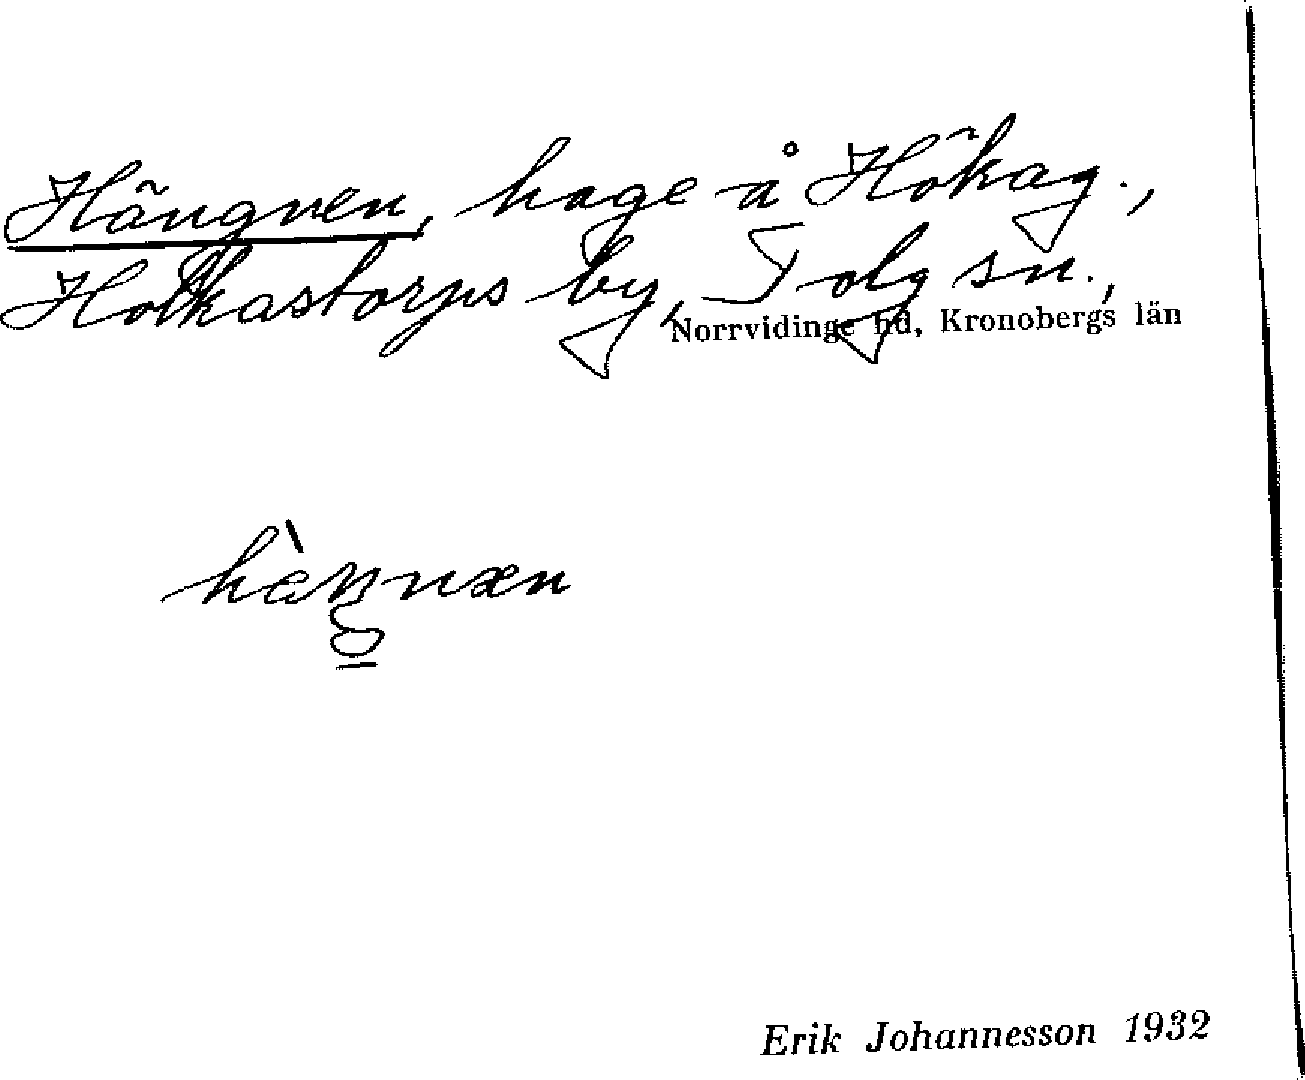 Hängnen, hage å Hökag.,
Holkastorps by, Tolg sn.,
Norrvidinge hd, Kronobergs län
Erik Johannesson 1932